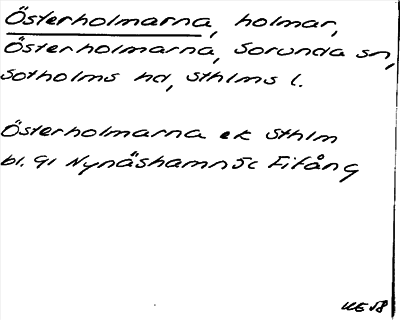 Österholmarna, holmar,
Österholmarna, Sorunda sn,
Sotholms hd, Sthlms l.
Österholmarna ek Sthlm
bl. 91 Nynäshamn 5c Fifång